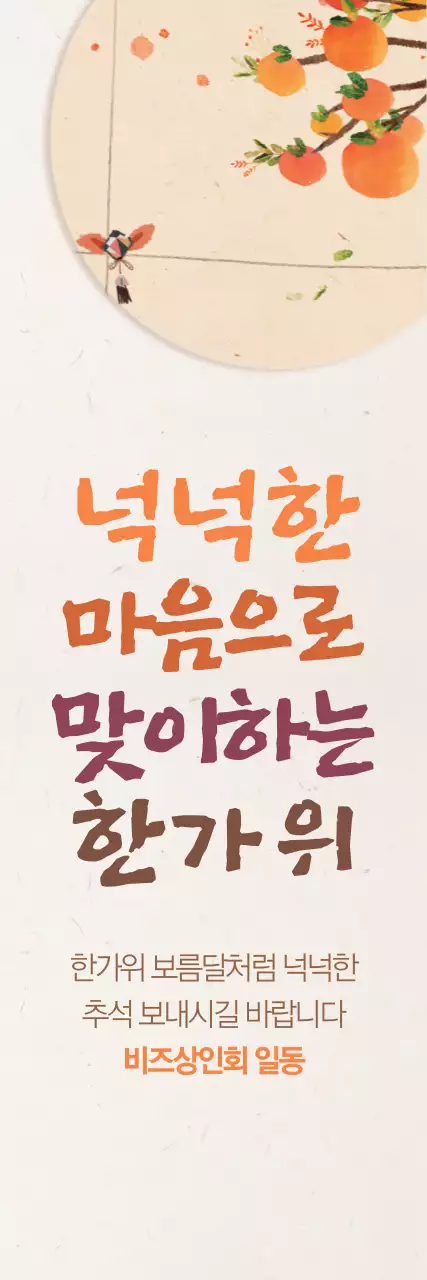 넉넉한
마음으로
맞이하는
한가위
한가위 보름달처럼 넉넉한
추석 보내시길 바랍니다
비즈상인회 일동